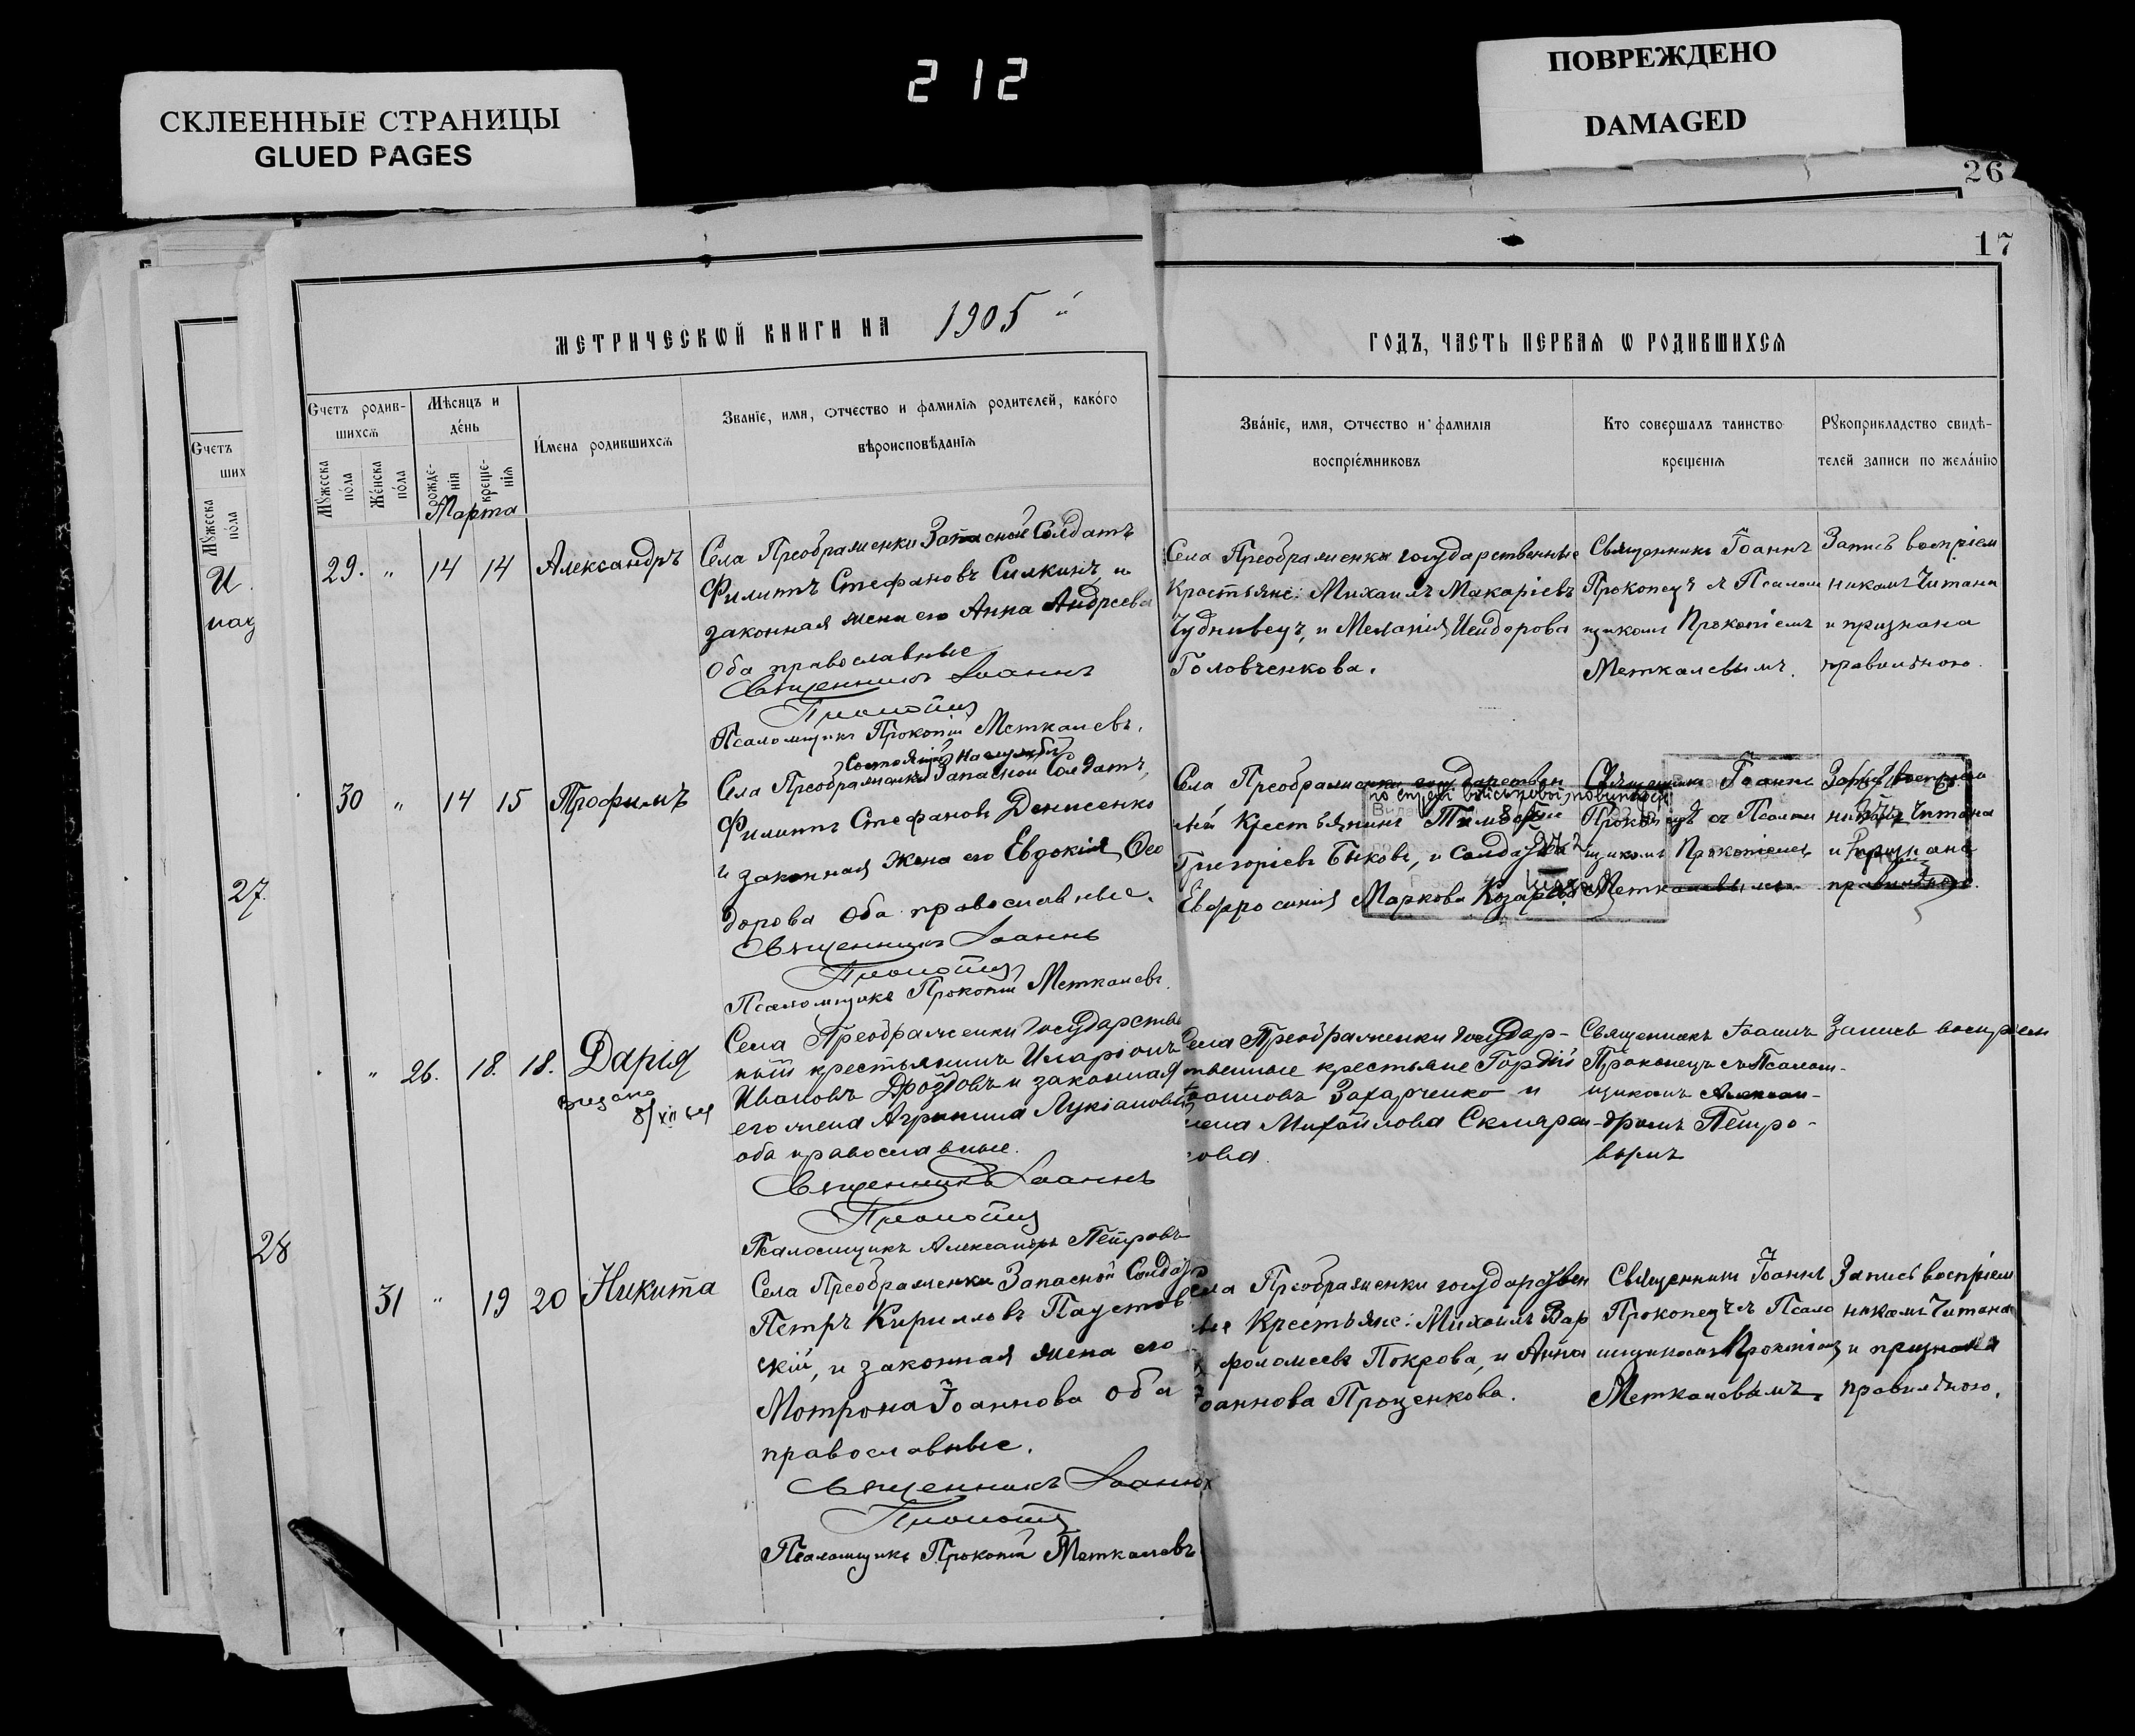 СКЛЕЕННЫЕ СТРАНИЦЫ
GLUED PAGES
212
ПОВРЕЖДЕНО
DAMAGED
26
17
МЕТРИЧЕСКѠЙ КНИГИ НА 1905
ГОДЪ, ЧАСТЬ ПЕРВАЯ Ѡ РОДИВШИХСЯ
Счетъ родив-
шихся
Мꙋжеска
пола
Же́нска
по́ла
Мѣсяцъ и
де́нь
рожде-
нія
креще-
нія
И́мена родившихся
Званіе, имя, отчество и фамилія родителей, како́го
вѣроисповѣданія
Зва́ніе, имя, отчество и фамилія
воспріе́мниковъ
Кто совершалъ таинство
крещенія
Рꙋкоприкладство свидѣ-
телей записи по жела́нію
Счетъ
ших
Мꙋжеска
пола
27.
28
Марта
29. " 14 14 Александръ
Села Преображенки Запасной Солдатъ
Филиппъ Стефановъ Силкинъ, и
законная жена его Анна Андреева
Оба православные
Священникъ Іоаннъ
Псаломщикъ Прокопій Меткалевъ.
Села Преображенки государственные
Крестьяне: Михаилъ Макаріевъ
Чуднивецъ, и Меланія Исидорова
Головченкова.
Священникъ Іоаннъ
Прокопецъ съ Псалом
щикомъ Прокопіемъ
Меткалевымъ.
Запись воспріем
никамъ Читана
и признана
правильною.
30 " 14 15 Трофимъ
Состоящій на службѣ
Села Преображенки Запасной Солдатъ,
Филиппъ Стефановъ Денисенко
и законная жена его Евдокія Ѳео
дорова Оба православные.
Священникъ Іоаннъ
Псаломщикъ Прокопій Меткалевъ.
Села Преображенки государствен
ный Крестьянинъ Тимоѳей
Григоріевъ Быковъ, и Солдатка
Евфросинія Маркова Козарева
Священникъ Іоаннъ
Прокопецъ съ Псалом
щикомъ Прокопіемъ
Меткалевымъ.
Запись воспріем
никамъ Читана
и признана
правильною.
" 26. 18. 18. Дарія
Видано
Села Преображенки Государствен
ный крестьянинъ Иларіонъ
Ивановъ Дроздовъ и законная
его жена Агрипина Лукіановна
оба православные.
Священникъ Іоаннъ
Псаломщикъ Александръ Петровъ
Села Преображенки Государ-
твенные крестьяне Гордій
Захарченко и
Михайлова Скляре
кова.
Священникъ Іоаннъ
Прокопецъ съ Псалом-
щикомъ Алексан-
дромъ Петро-
вымъ
Запись воспріем
31 " 19 20 Никита
Села Преображенки Запасной Солдатъ
Петръ Кирилловъ Паустов
скій, и законная жена его
Мотрона Іоаннова оба
православные.
Священникъ Іоаннъ
Псаломщикъ Прокопій Меткалевъ
Села Преображенки государствен
ные Крестьяне: Михаилъ Вар
фоломеевъ Покрова, и Анна
Іоаннова Проценкова.
Священникъ Іоаннъ
Прокопецъ съ Псало
мщикомъ Прокопіемъ
Меткалевымъ.
Запись воспріем
никамъ Читана
и признана
правильною.